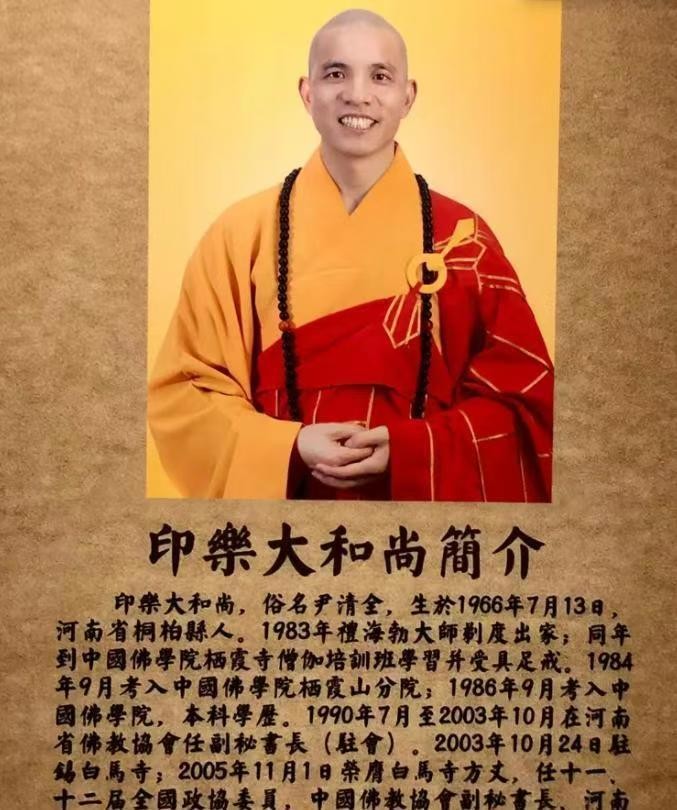 印樂大和尚簡介
印樂大和尚，俗名尹清全，生於1966年7月13日，
河南省桐柏縣人。1983年禮海勃大師剃度出家；同年
到中國佛學院栖霞寺僧伽培訓班學習并受具足戒。1984
年9月考入中國佛學院栖霞山分院；1986年9月考入中
國佛學院，本科學歷。1990年7月至2003年10月在河南
省佛教協會任副秘書長（駐會）。2003年10月24日駐
錫白馬寺；2005年11月1日榮膺白馬寺方丈，任十一、
十二届全國政協委員，中國佛教協會副秘書長，河南